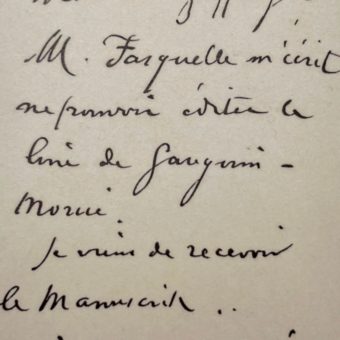 M. Fasquelle m'écrit
ne pouvoir éditer le
livre de Gauguin -
Morice.
Je viens de recevoir
le Manuscrit ..